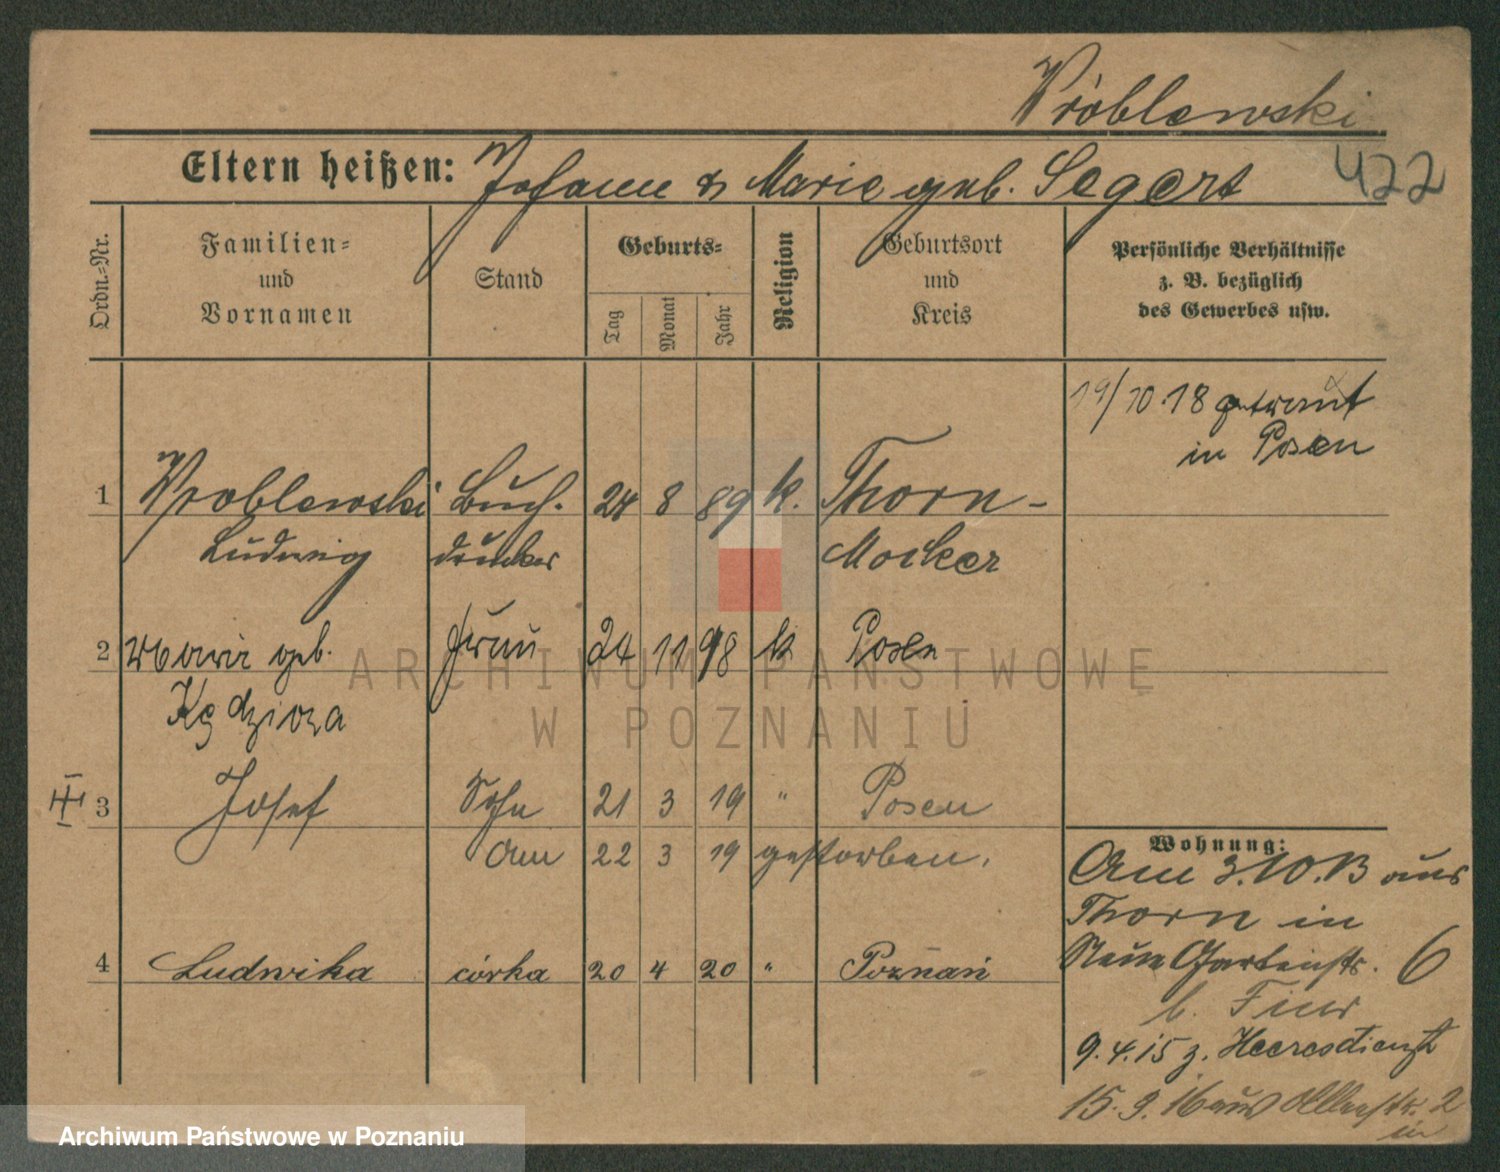 Wróblewski
Eltern heißen: Johann & Marie geb. Segert
422
Ordn.=Nr.
Familien=
und
Vornamen
Stand
Geburts=
Tag
Monat
Jahr
Religion
Geburtsort
und
Kreis
Persönliche Verhältnisse
z. B. bezüglich
des Gewerbes usw.
19/10.18 getraut
in Posen
1 Wroblewski Buch- 24 8 89 k. Thorn-
Ludwig drucker Mocker
2 Maria geb. Frau 24 11 98 k Posen
Kędziora
3 Josef Sohn 21 3 19 " Posen
am 22 3 19 gestorben.
4 Ludwika córka 20 4 20 " Poznań
Wohnung:
Am 3.10.13 aus
Thorn in
Neue Gartenstr. 6
b.
9.4.15 z. Heeresdienst
15.9.16 aus 2
in
ARCHIWUM PAŃSTWOWE
W POZNANIU
Archiwum Państwowe w Poznaniu